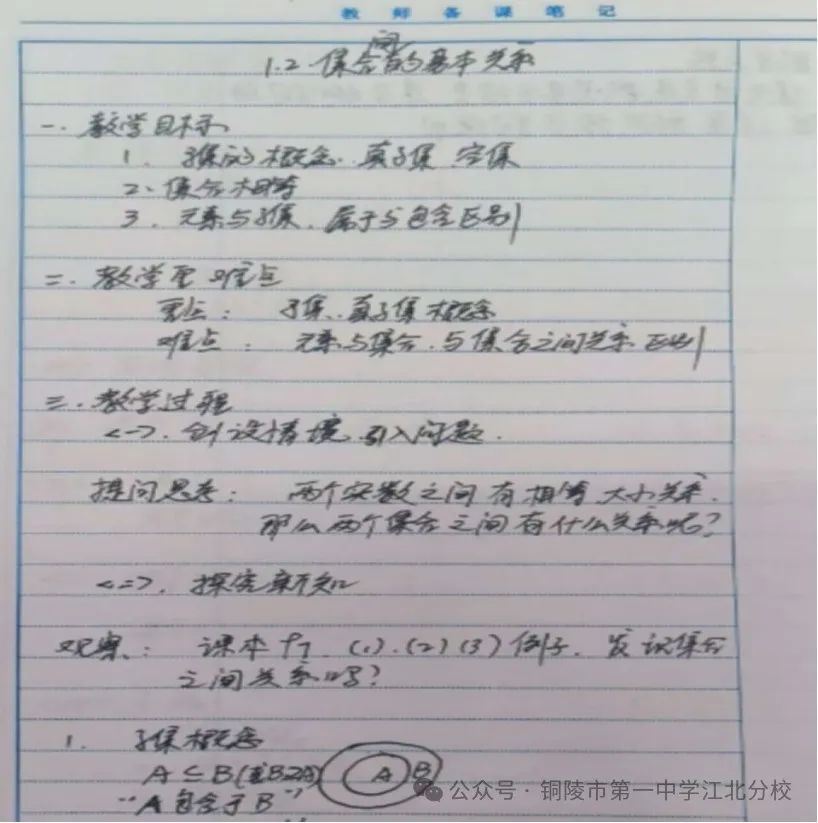 教师备课笔记
1.2 集合间的基本关系
一. 教学目标
1. 子集的概念. 真子集 空集
2. 集合相等
3. 元素与子集. 属于与包含区别
二. 教学重 难点
重点: 子集. 真子集概念
难点: 元素与集合. 与集合之间关系 区别
三. 教学过程
<一>. 创设情境 引入问题.
提问思考: 两个实数之间有相等 大小关系.
那么两个集合之间有什么关系呢?
<二>. 探究新知
观察: 课本 P7 (1). (2) (3) 例子. 发现集合
之间关系吗?
1. 子集概念
A⊆B(或B⊇A) A B
"A包含于B"
公众号·铜陵市第一中学江北分校